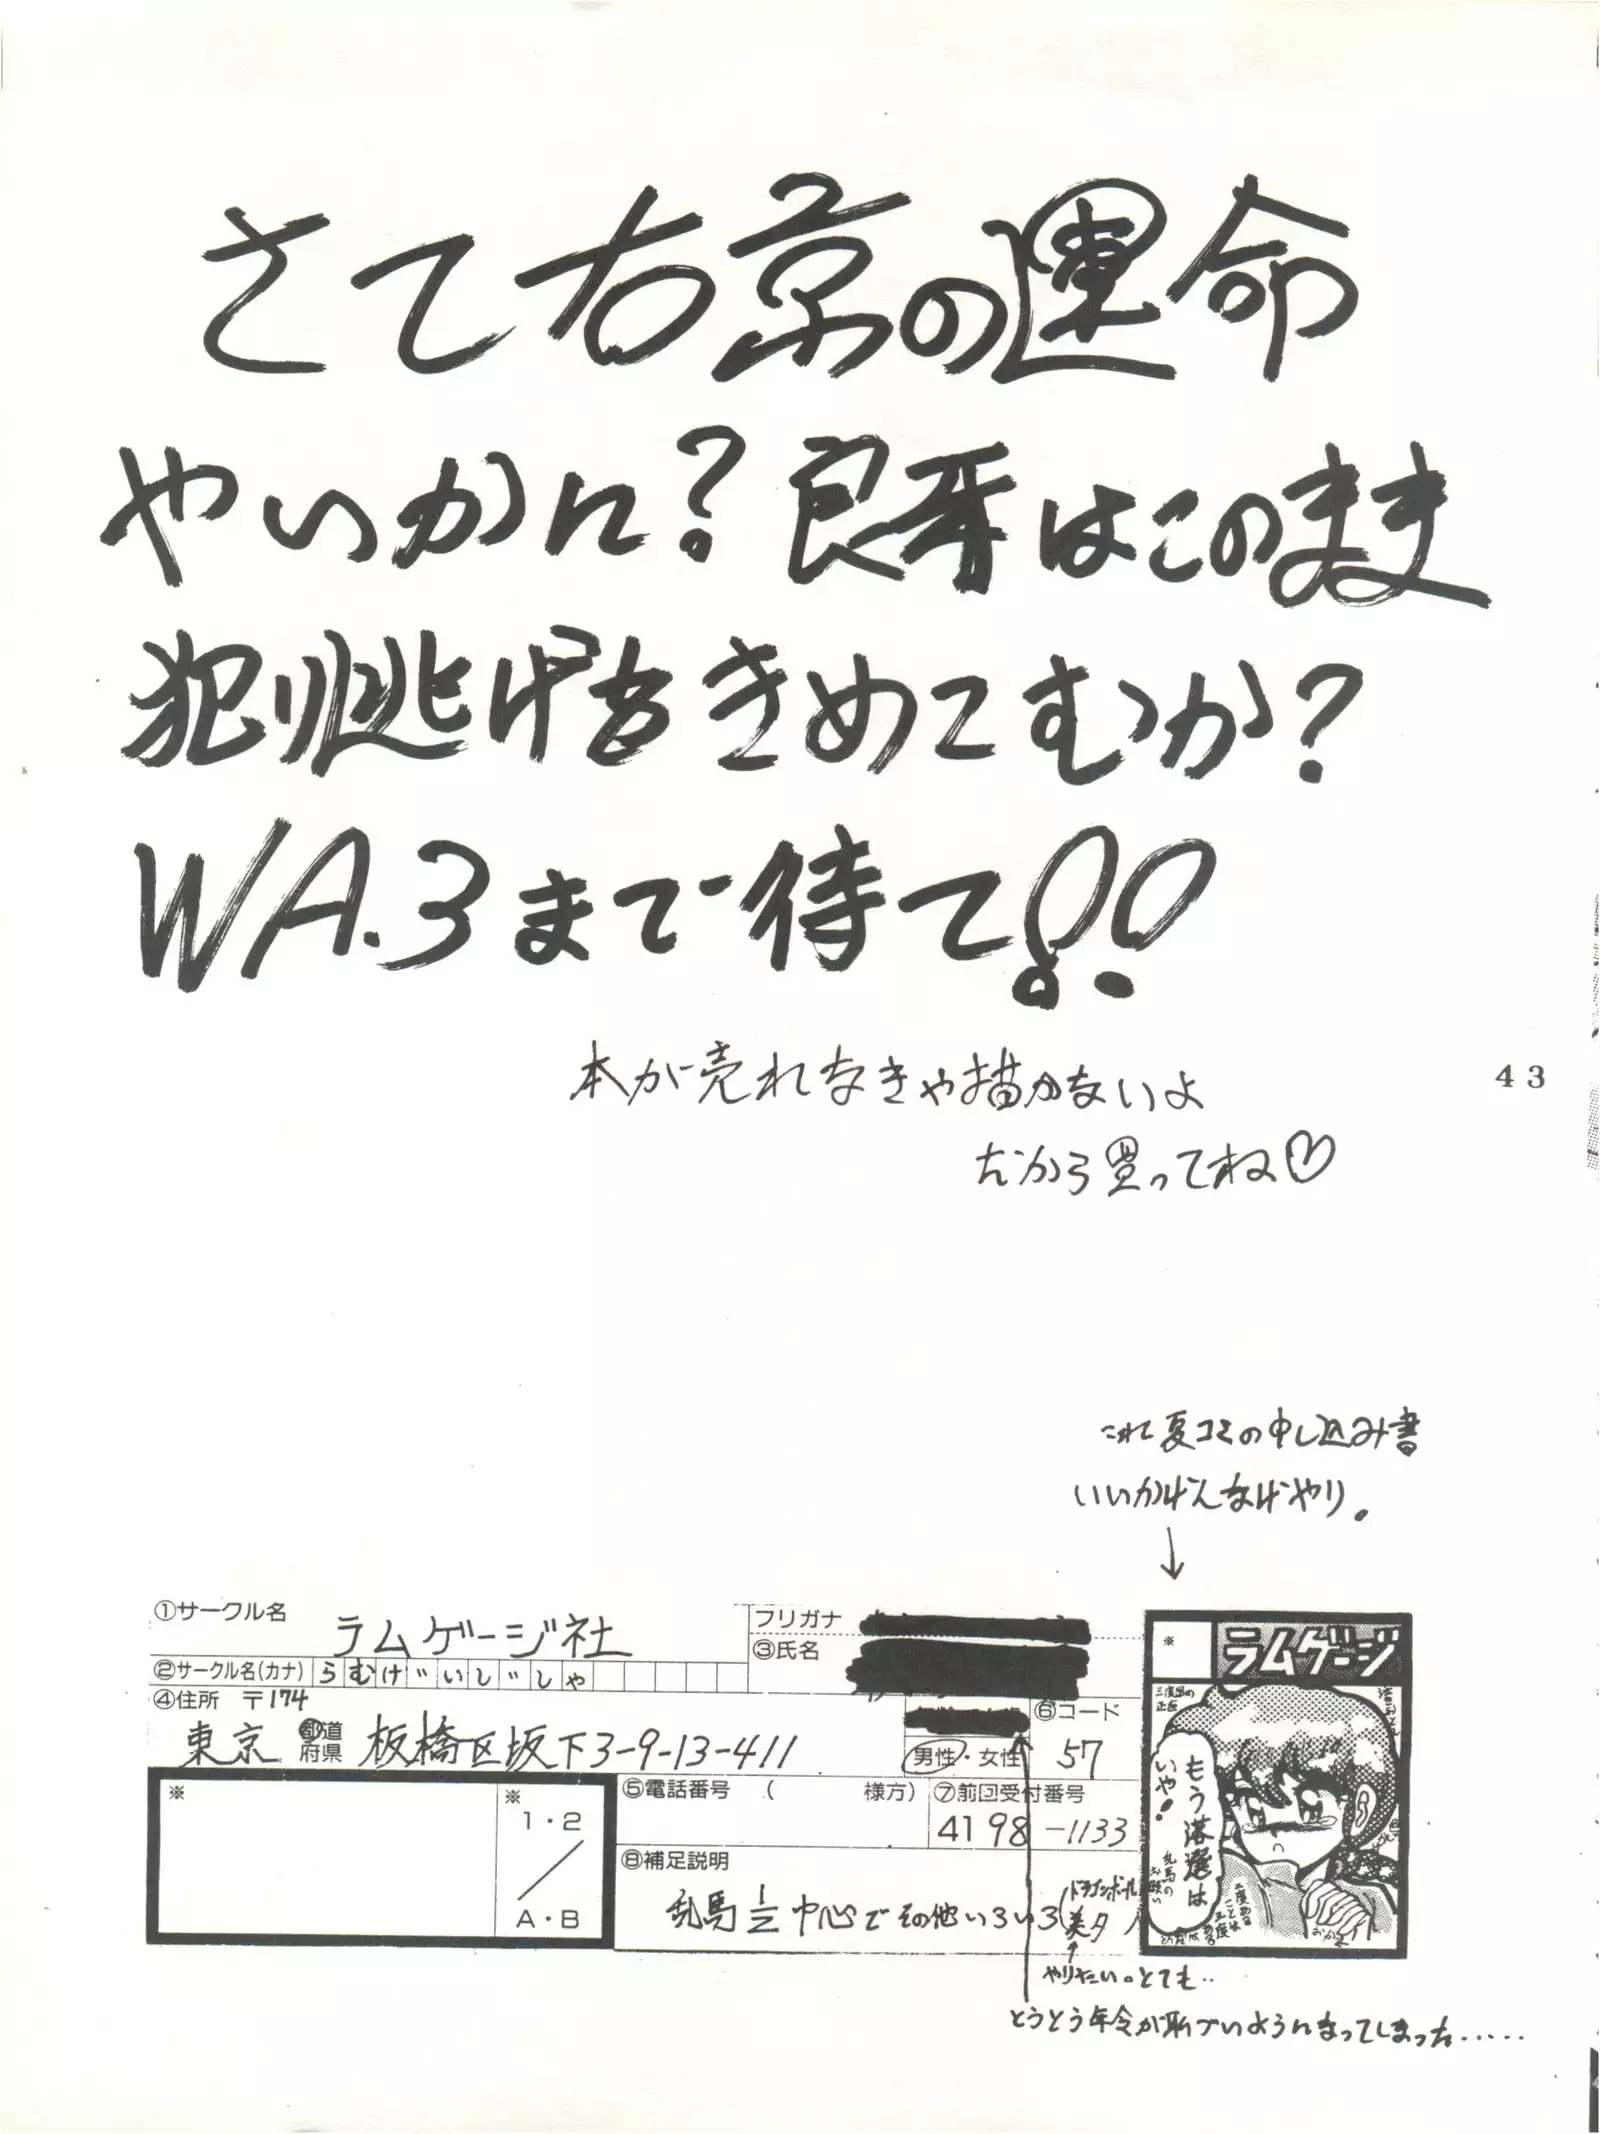 さて右京の運命
やいかに?良牙はこのまま
犯り逃げをきめてむか?
WA.3まで待て!!
本が売れなきゃ描かないよ
だから買ってね♡
43
これ夏コミの申し込み書
いいかげんなげやり。
↓
①サークル名 ラムゲージ社
②サークル名(カナ) らむげいじしゃ
フリガナ
③氏名
④住所 〒174
東京 都道府県 板橋区坂下3-9-13-411
男性・女性
⑥コード
57
※
※
1・2
A・B
⑤電話番号 ( 様方)
⑦前回受付番号
4198-1133
⑧補足説明
乱馬1/2中心でその他いろいろ(ドラゴンボール
美夕
※
ラムゲージ
もう落選は
いや!
乱馬の
お願い
二度ある
ことは
三度
ある
やりたい。とても..
とうとう年令が恥づいようになってしまった.....